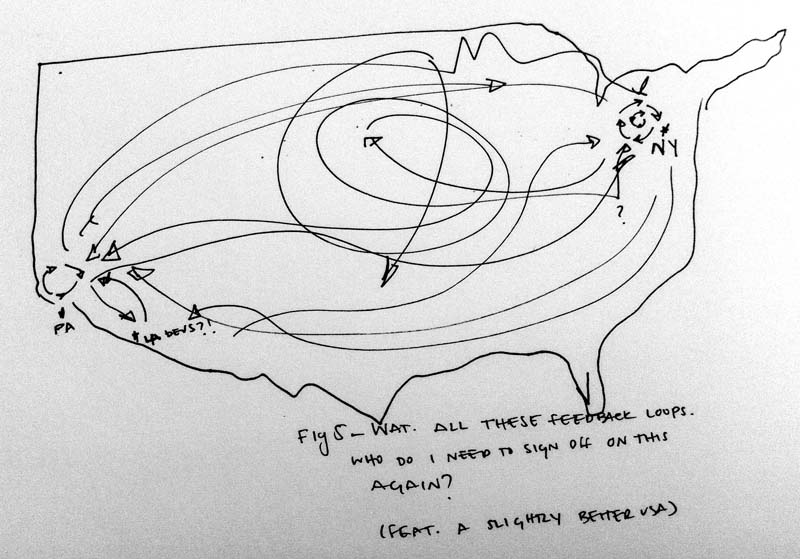 NY
?
PA
LA DEVS?!
Fig 5 - WAT. ALL THESE FEEDBACK LOOPS.
WHO DO I NEED TO SIGN OFF ON THIS
AGAIN?
(FEAT. A SLIGHTLY BETTER USA)